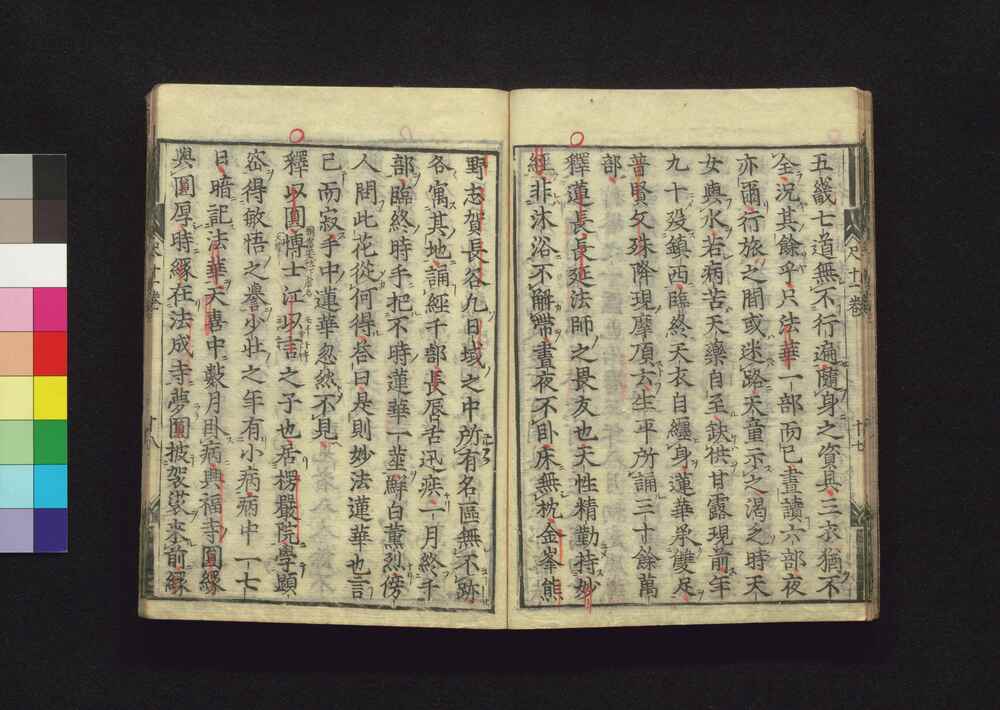 五畿七道無不行遍隨身之資具三求猶不
全況其餘乎只法華一部而已晝讀六部夜
亦爾行旅之間或迷路天童示之渴之時天
女與水若病苦天藥自至缺供甘露現前年
九十歿鎮西臨終天衣自纏身蓮華承雙足
普賢文殊降現摩頂云生平所誦三十餘萬
部
釋蓮長長延法師之畏友也天性精勤持妙
經非沐浴不解帶晝夜不臥床無枕金峯熊
野志賀長谷九日域之中所有名區無不跡
各寓其地誦經千部長辰舌迅疾一月終千
部臨終時手把不時蓮華一莖鮮白薰烈傍
人問此花從何得答曰是則妙法蓮華也言
已而寂手中蓮華忽然不見
釋以圓博士江以言之子也居楞嚴院學顯
密得敏悟之譽少壯之年有小病病中一七
日暗記法華天喜中數月臥病興福寺圓緣
與圓厚時緣在法成寺夢圓披袈裟來前緣
十七
十八